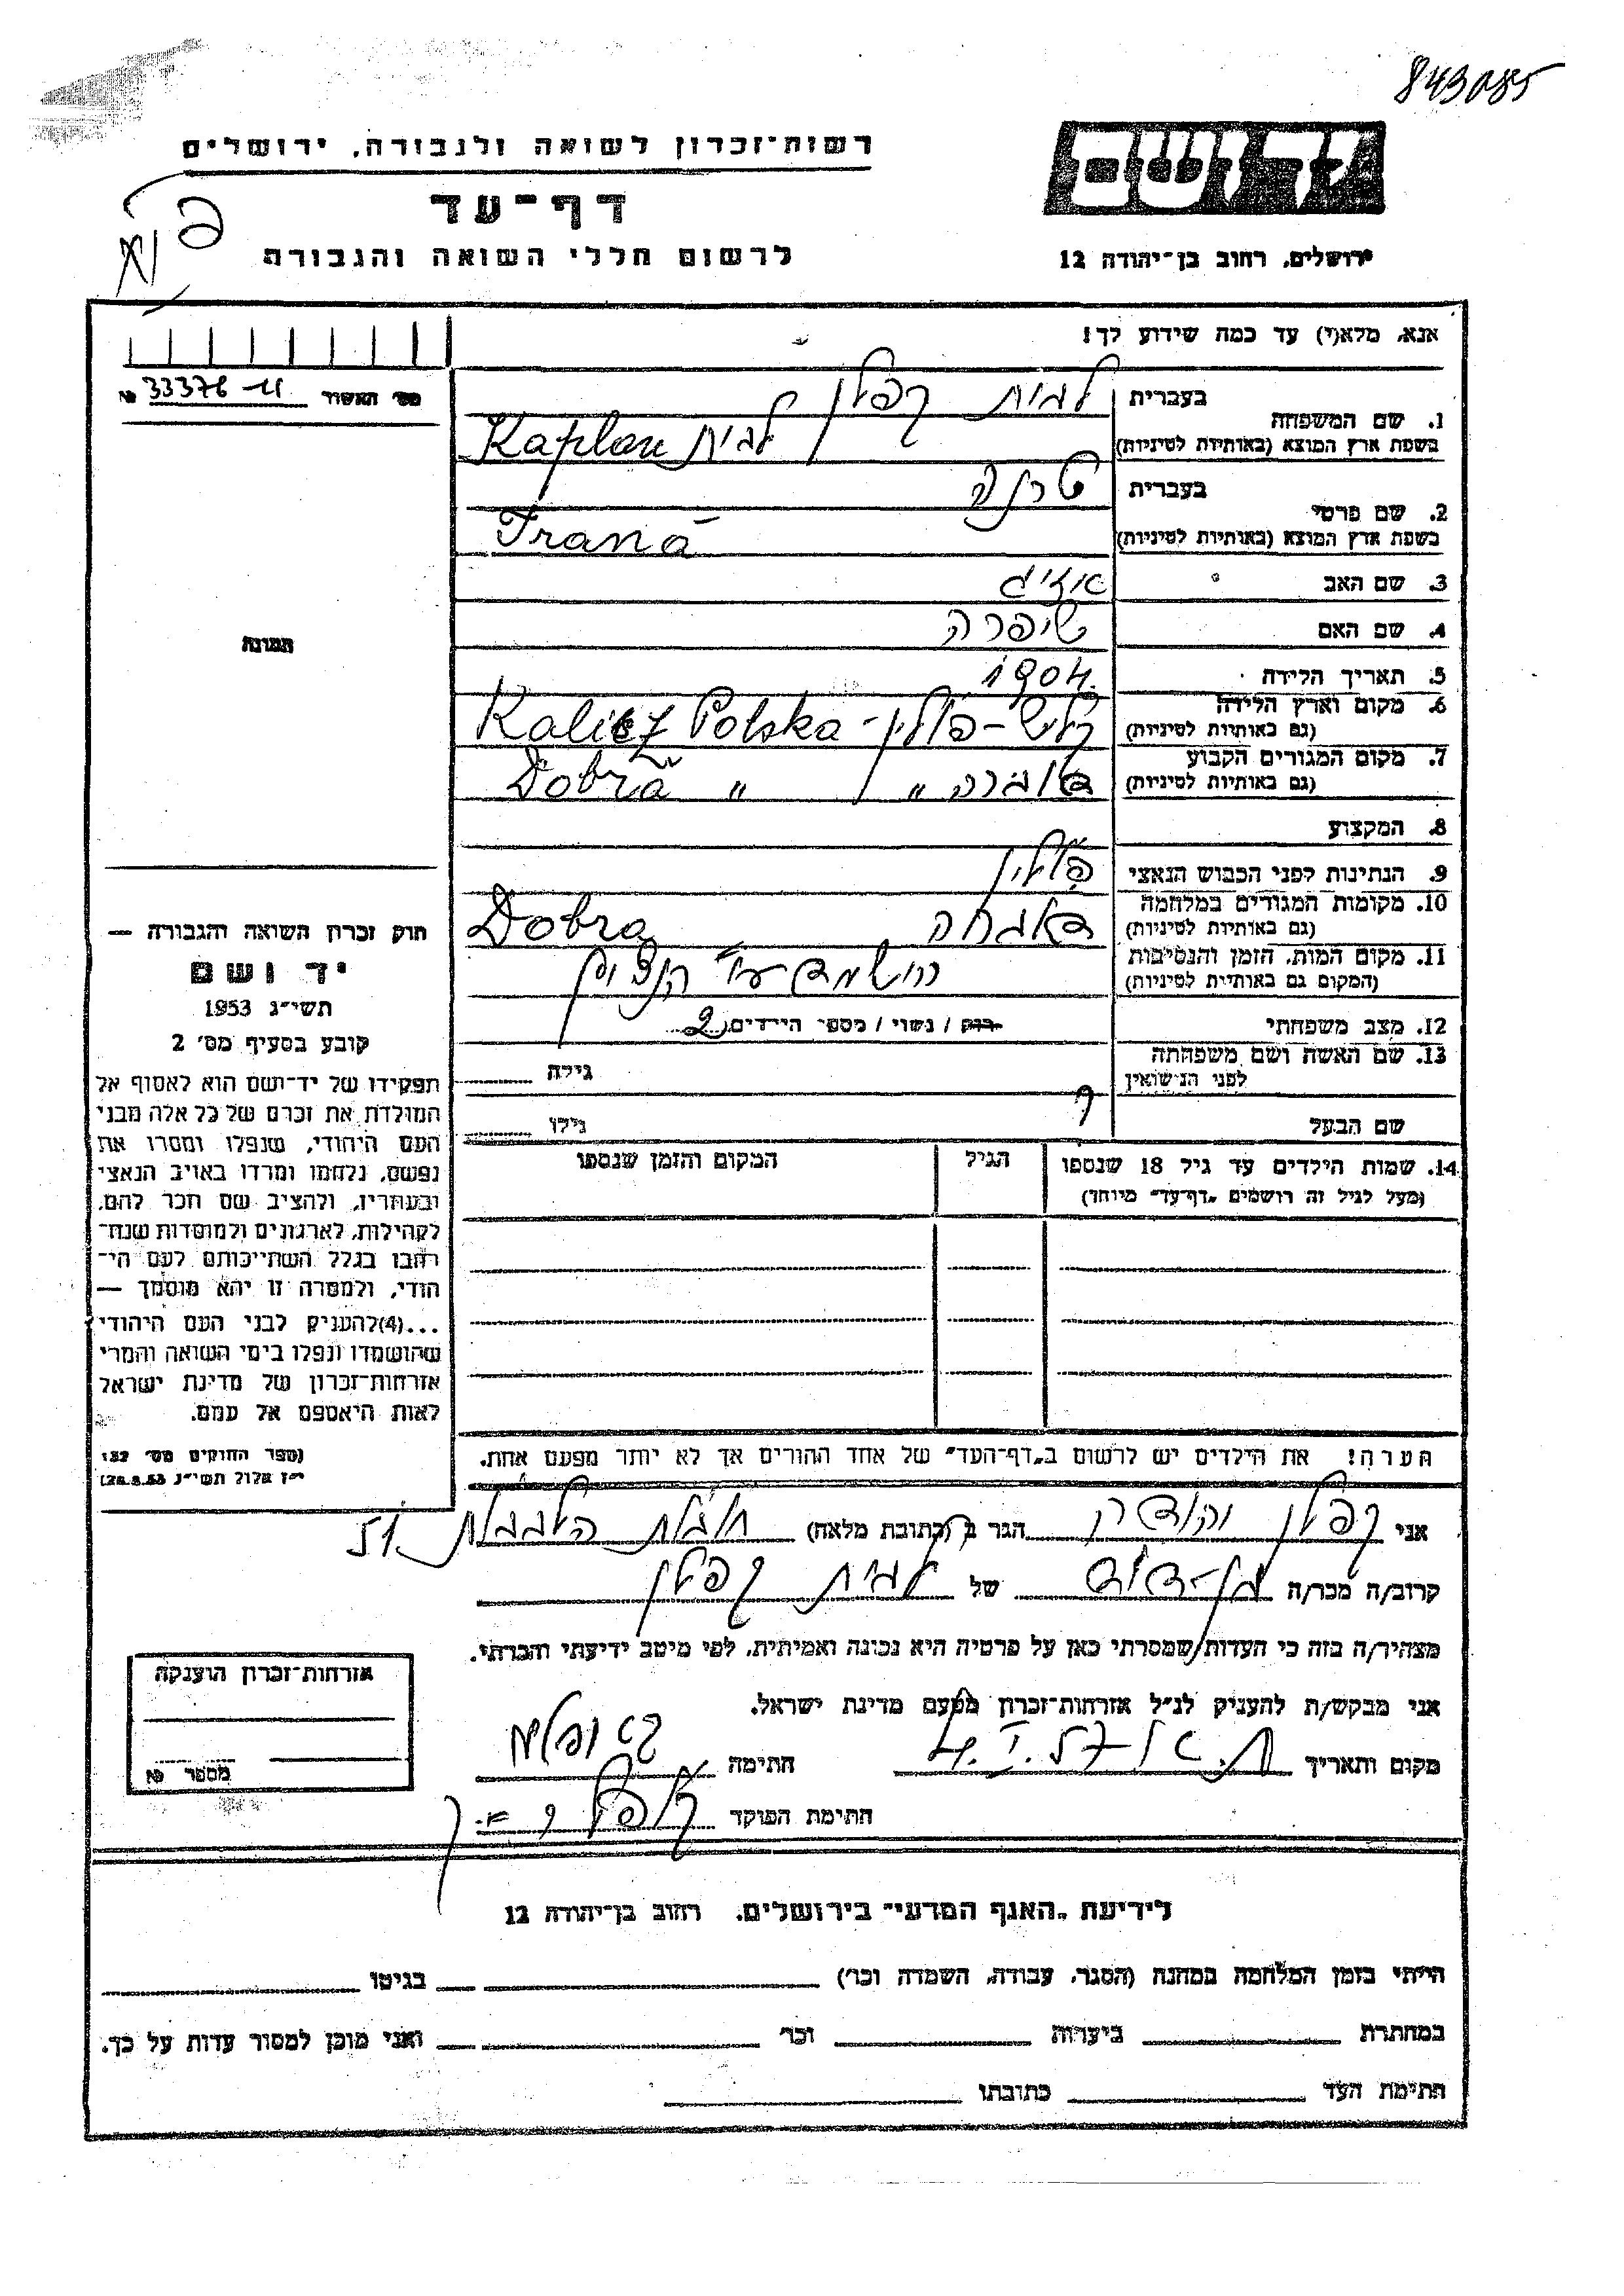 843085
רשות־זכרון לשואה ולגבורה, ירושלים
דף־עד
לרשום חללי השואה והגבורה
יד ושם
ירושלים, רחוב בן־יהודה 12
אנא, מלא(י) עד כמה שידוע לך!
מס׳ האשור 33376 №
1. שם המשפחה בעברית לבית קפלן
בשפת ארץ המוצא (באותיות לטיניות) לבית Kaplan
2. שם פרטי בעברית טרנה
בשפת ארץ המוצא (באותיות לטיניות) Trana
3. שם האב אייזיג
4. שם האם שיפרה
5. תאריך הלידה 1904.
6. מקום וארץ הלידה קליש – פולין – Kalisz Polska
(גם באותיות לטיניות)
7. מקום המגורים הקבוע דוברה " Dobra "
(גם באותיות לטיניות)
8. המקצוע
9. הנתינות לפני הכבוש הנאצי פולין
10. מקומות המגורים במלחמה דוברה Dobra
(גם באותיות לטיניות)
11. מקום המות, הזמן והנסיבות הושמד ע"י הנצים
(המקום גם באותיות לטיניות)
12. מצב משפחתי רוק / נשוי / מספר הילדים 2
13. שם האשה ושם משפחתה גילה
לפני הנישואין
שם הבעל ? גילו
14. שמות הילדים עד גיל 18 שנספו הגיל המקום והזמן שנספו
(מעל לגיל זה רושמים „דף־עד" מיוחד)
הערה! את הילדים יש לרשום ב„דף־העד" של אחד ההורים אך לא יותר מפעם אחת.
תמונה
חוק זכרון השואה והגבורה —
יד ושם
תשי״ג 1953
קובע בסעיף מס׳ 2
תפקידו של יד־ושם הוא לאסוף אל
המולדת את זכרם של כל אלה מבני
העם היהודי, שנפלו ומסרו את
נפשם, נלחמו ומרדו באויב הנאצי
ובעוזריו, ולהציב שם וזכר להם,
לקהילות, לארגונים ולמוסדות שנח־
רבו בגלל השתייכותם לעם הי־
הודי, ולמטרה זו יהא מוסמך —
...(4)להעניק לבני העם היהודי
שהושמדו ונפלו בימי השואה והמרי
אזרחות־זכרון של מדינת ישראל
לאות היאספם אל עמם.
(ספר החוקים מס׳ 132
י״ז אלול תשי״ג 28.8.53)
אני קפלן הגר ב (כתובת מלאה) 51
קרוב/ה מכר/ה בן-דוד של לבית קפלן
מצהיר/ה בזה כי העדות שמסרתי כאן על פרטיה היא נכונה ואמיתית, לפי מיטב ידיעתי והכרתי.
אני מבקש/ת להעניק לנ״ל אזרחות־זכרון מטעם מדינת ישראל.
מקום ותאריך 4.I.57 חתימה
חתימת הפוקד
אזרחות־זכרון הוענקה
מספר №
לידיעת „האגף המדעי" בירושלים, רחוב בן־יהודה 12
הייתי בזמן המלחמה במחנה (הסגר, עבודה, השמדה וכו׳) בגיטו
במחתרת ביערות וכו׳ ואני מוכן למסור עדות על כך.
חתימת העד כתובתו